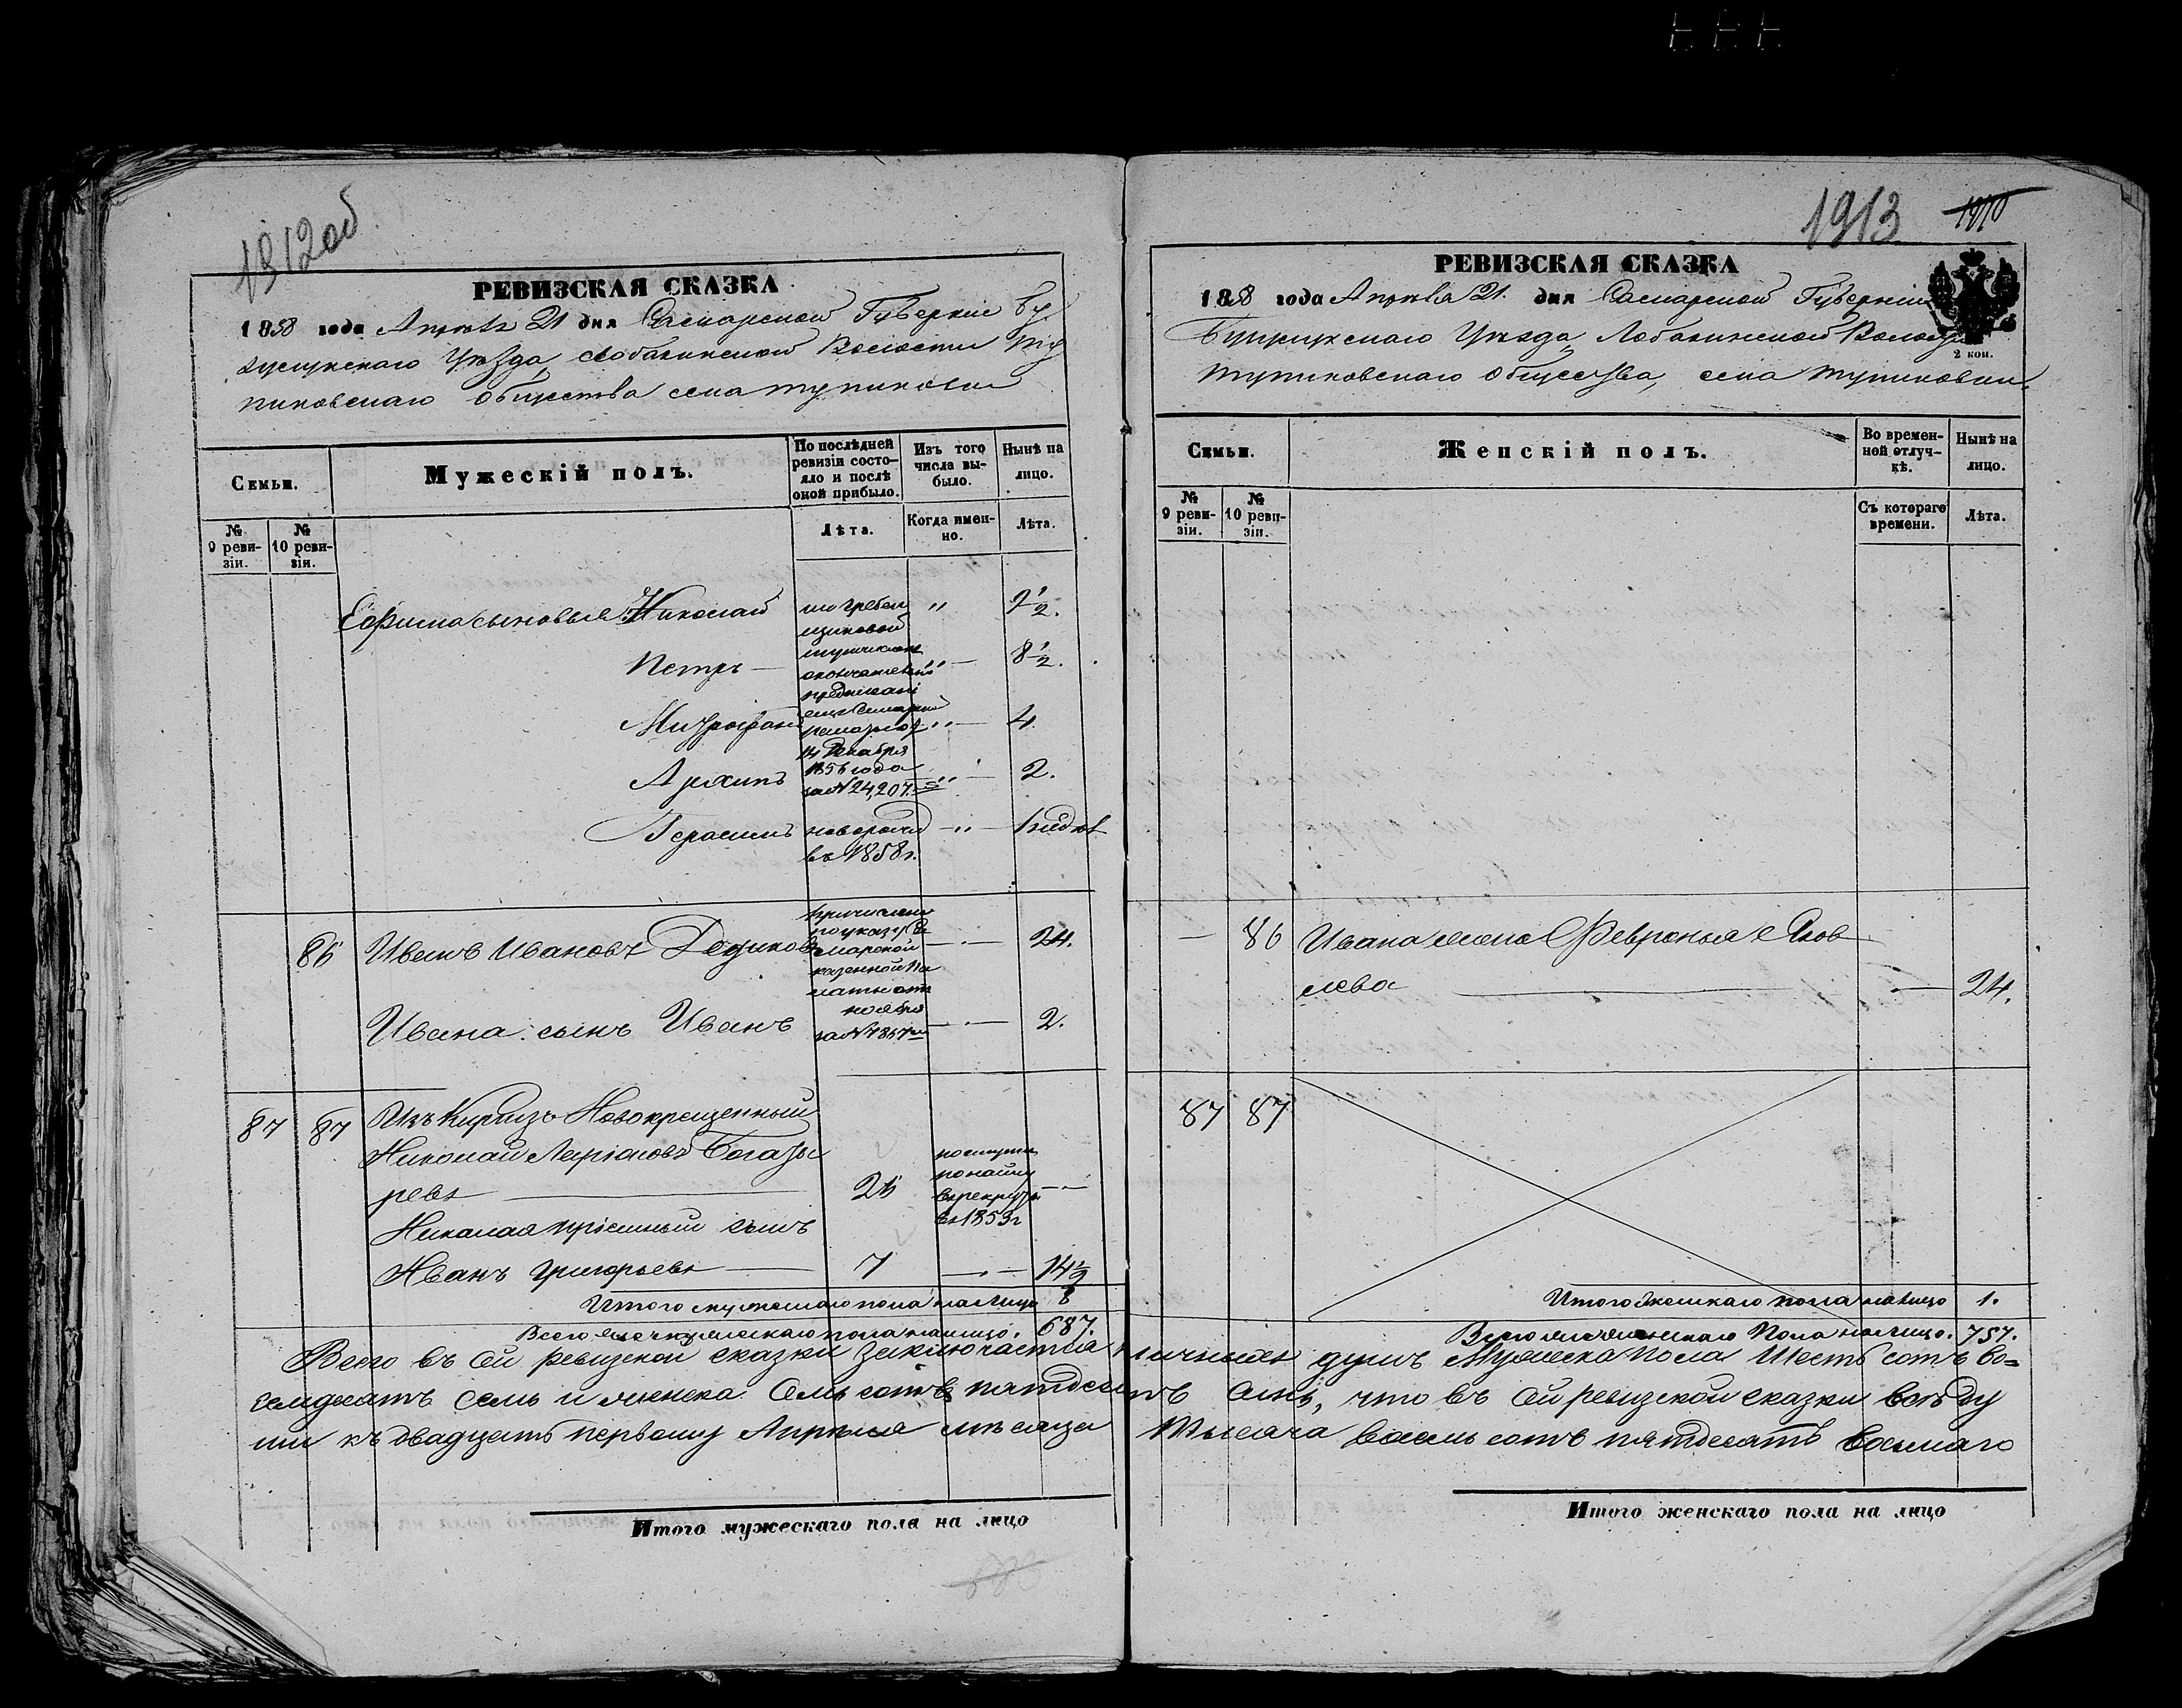 1912об
РЕВИЗСКАЯ СКАЗКА
1858 года Апреля 21 дня Самарской Губернiи Бу
зулукскаго Уѣзда, Лобазинской Волости Ту
пиковскаго Общества села Тупиковки
Семьи.
Мужескiй полъ.
По послѣдней ревизiи состо-
яло и послѣ
оной прибыло.
Изъ того
числа вы-
было.
Нынѣ на
лицо.
№
9 реви-
зiи.
№
10 реви-
зiи.
Лѣта.
Когда имен-
но.
Лѣта.
Ефима сыновья: Николай " 9 1/2.
Петръ — " — 8 1/2.
Митрофанъ " — 4
14 Декабря
Архипъ 1856 года — 2.
за № 24,207.
Герасимъ новорожд — " — 1 недѣл
въ 1858 г.
86 Иванъ Ивановъ Дедиковъ причислены
по указу Са
марской — 24.
казенной Па
латы отъ
ноября
Ивана сынъ Иванъ за № — 2.
87 87 Изъ Киргизъ Новокрещенный
Николай Ларiоновъ Богаты
ревъ — 26 поступилъ
по найму
въ рекруты
въ 1853 г
Николая прiемный сынъ
Иванъ Григорьевъ — 7 — 14 1/2
Итого мужескаго пола на лицо 8
Всего мужескаго пола на лицо. 687.
1913 1910
РЕВИЗСКАЯ СКАЗКА
1858 года Апреля 21. дня Самарской Губернiи
Бузулукскаго Уѣзда, Лобазинской Волости
2 коп.
Тупиковскаго Общества, села Тупиковки.
Семьи.
Женскiй полъ.
Во времен-
ной отлуч-
кѣ.
Нынѣ на
лицо.
№
9 реви-
зiи.
№
10 реви-
зiи.
Съ котораго
времени.
Лѣта.
— 86 Ивана жена Февронья Яков
лева — 24.
87 87
Итого женскаго пола на лицо 1.
Всего женскаго Пола на лицо. 757.
Всего въ сей ревизской сказки заключается личныхъ душъ Мужеска пола Шесть сотъ во=
семдесятъ семь и женска Семь сотъ пятдесятъ семь, что въ сей ревизской сказки всѣ ду
ши къ двадцать первому Апреля мѣсяца Тысяча восемь сотъ пятдесятъ восьмаго
Итого мужескаго пола на лицо
Итого женскаго пола на лицо